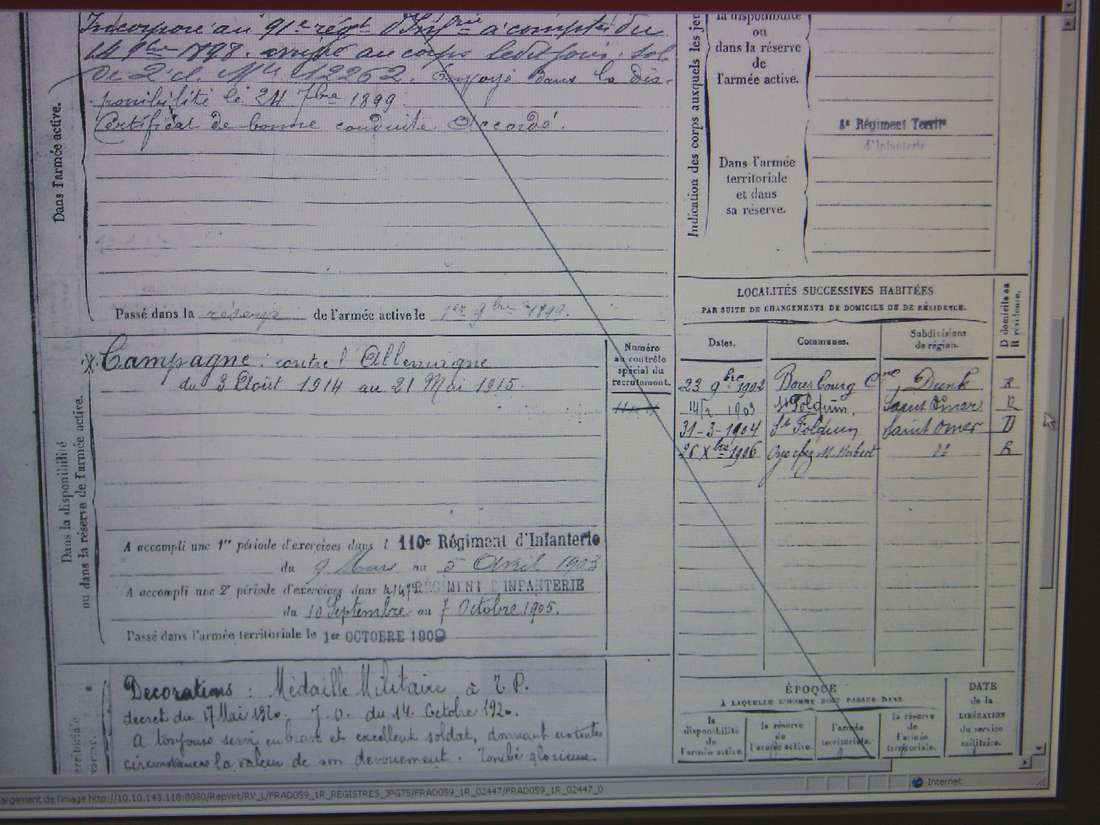 Incorporé au 91e régt d'Infrie à compter du
14 9bre 1898. arrivé au corps ledit jour. Sol.
de 2e cl. Mle 12262. Envoyé dans la dis-
ponibilité le 24 7bre 1899.
Certificat de bonne conduite Accordé.
Dans l'armée active.
Passé dans la réserve de l'armée active le 1er 9bre 1899.
Campagne : contre l'Allemagne
du 3 Août 1914 au 21 Mai 1915.
Dans la disponibilité
ou dans la réserve de l'armée active.
Numéro
au contrôle
spécial du
recrutement.
A accompli une 1re période d'exercices dans l 110e Régiment d'Infanterie
du 9 Mars au 5 Avril 1903
A accompli une 2e période d'exercices dans RÉGIMENT D'INFANTERIE
du 10 Septembre au 7 Octobre 1905.
Passé dans l'armée territoriale le 1er OCTOBRE 1909
Decorations : Médaille Militaire à T.P.
decret du 17 Mai 1920. J.O. du 14 Octobre 1920.
A toujours servi en brave et excellent soldat, donnant en toutes
circonstances la valeur de son devouement. Tombé glorieuse
Indication des corps auxquels les jeu
la disponibilité
ou
dans la réserve
de
l'armée active.
8e Régiment Territ
d'Infanterie
Dans l'armée
territoriale
et dans
sa réserve.
LOCALITÉS SUCCESSIVES HABITÉES
PAR SUITE DE CHANGEMENTS DE DOMICILE OU DE RÉSIDENCE.
D domicile ou
R résidence.
Dates. Communes. Subdivisions
de région.
23 9bre 1902 Bourbourg Cne, Dunk R
14/2 1903 St Folquin, Saint Omer R
31-3-1904 St Folquin Saint Omer D
26 Xbre 1906 Oye chez M. do R
ÉPOQUE
À LAQUELLE L'HOMME DOIT PASSER DANS
la
disponibilité
de
l'armée active.
la réserve
de
l'armée active.
l'armée
territoriale.
la réserve
de
l'armée
territoriale.
DATE
de la
LIBÉRATION
du service
militaire.
Internet
argement de l'image http://10.10.143.118:8080/RepVirt/RV_L/FRAD059_1R_REGISTRES_JPG75/FRAD059_1R_02447/FRAD059_1R_02447_0